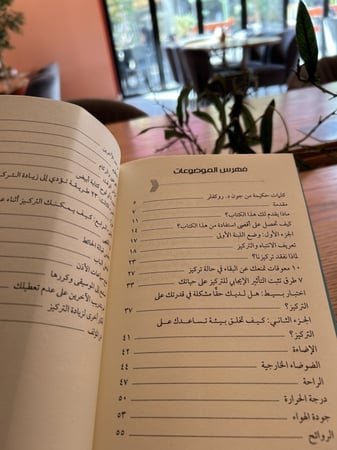 فهرس الموضوعات
كلمات حكيمة من جون د. روكفلر
مقدمة ٥
ماذا يقدم لك هذا الكتاب؟ ٧
كيف تحصل على أقصى استفادة من هذا الكتاب؟ ١١
الجزء الأول: وضع اللبنة الأولى
تعريف الانتباه والتركيز ١٧
لماذا نفقد تركيزنا؟
١٠ معوقات تمنعك عن البقاء في حالة تركيز
٧ طرق تثبت التأثير الإيجابي للتركيز على حياتك ٣٣
اختبار بسيط: هل لديك حقًا مشكلة في قدرتك على
التركيز؟ ٣٧
الجزء الثاني: كيف تخلق بيئة تساعدك على
التركيز؟ ٤١
الإضاءة ٤٢
الضوضاء الخارجية ٤٤
الراحة ٤٧
درجة الحرارة ٥٠
جودة الهواء ٥٣
الروائح ٥٥
٢٣ طريقة تؤدي إلى زيادة التركيز
كيف يمكنك التركيز أثناء
الأذن
الموسيقى وكررها
الآخرين على عدم تعطيلك
أخرى لزيادة التركيز